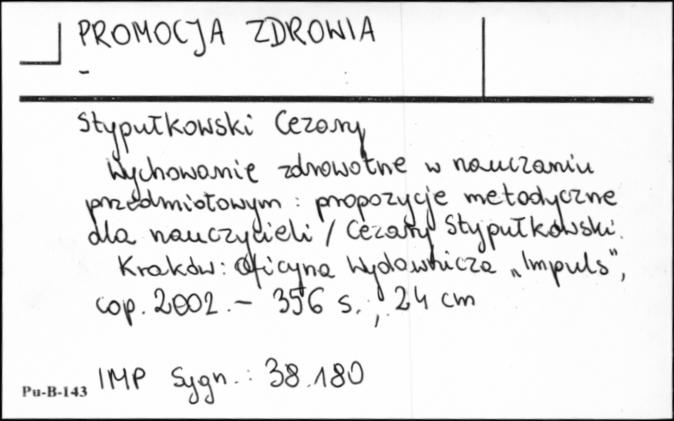 PROMOCJA ZDROWIA
-
Stypułkowski Cezary
Wychowanie zdrowotne w nauczaniu
przedmiotowym : propozycje metodyczne
dla nauczycieli / Cezary Stypułkowski.
Kraków : Oficyna Wydawnicza „Impuls",
cop. 2002. - 356 s. ; 24 cm
IMP Sygn. : 38.180
Pu-B-143